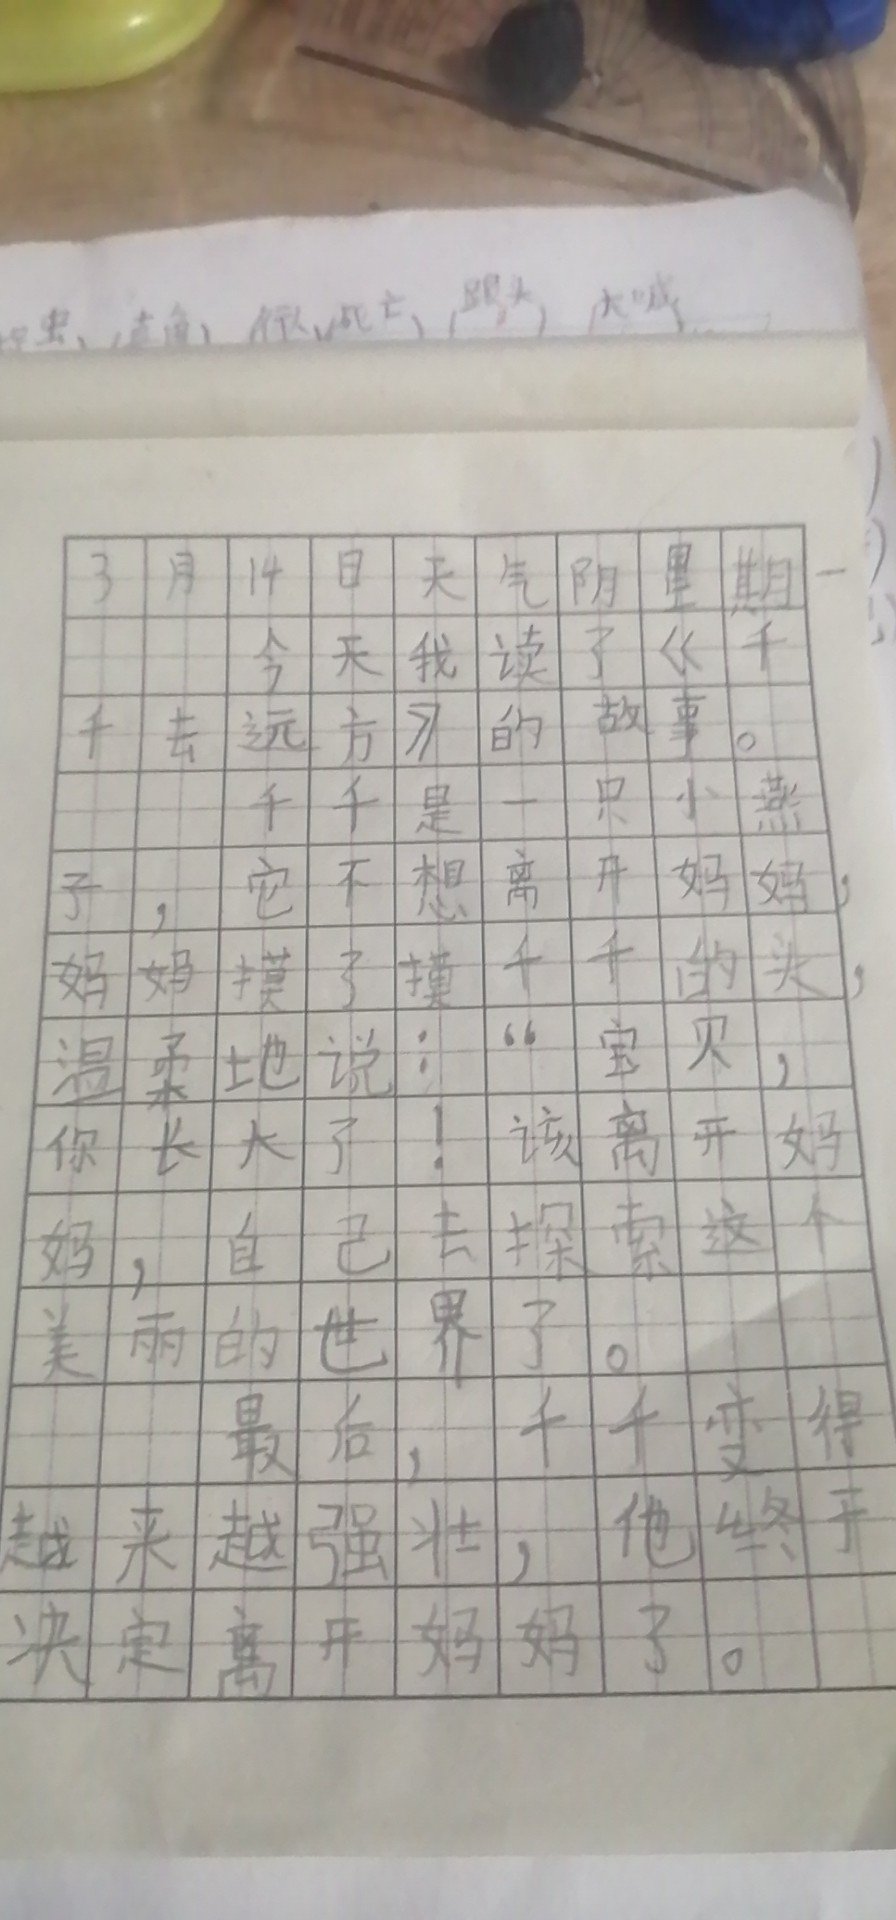 直角
死亡
3月14日天气阴星期一
今天我读了《千
千去远方》的故事。
千千是一只小燕
子，它不想离开妈妈，
妈妈摸了摸千千的头，
温柔地说：“宝贝，
你长大了！该离开妈
妈，自己去探索这个
美丽的世界了。
最后，千千变得
越来越强壮，他终于
决定离开妈妈了。